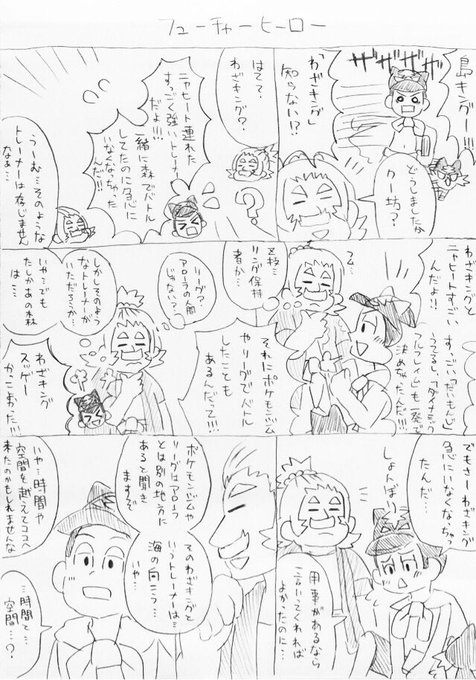 フューチャーヒーロー
島キングー!!!
ザザザザザ
どうしましたな
クー坊?
「わざキング」
知らない!?
はてて?
わざキング?
ニャヒート連れた
すっごく強いトレーナー
だよ!!!
一緒に森でバトル
してたのに急に
いなくなっちゃった
んだ!!
うーむ…そのような
トレーナーは存じません
なぁ…
わざキングと
ニャヒートすごい
んだよ!!
すっごい「だいもんじ」
決めたんだ!!!
それにポケモンジム
やリーグでバトル
したことも
あるんだって!!!
Z技…
Zリング保持
者か…
リーグ?
アローラの人間
じゃない?
しかしそのよ
うなトレーナーが
いただろうか…
いや…でも
たしかあの森
は…
わざキング
スッゲー
かっこよかった!!!
でもさーわざキング
急にいなくなっちゃっ
たんだ…
しょんぼり
用事があるなら
一言いってくれれば
よかったのに…
ポケモンジムや
リーグはアローラ
とは別の地方に
あると聞き
ますぞ
そのわざキングと
いうトレーナーは…
海の向こう…
いや…
いやっ時間や
空間を越えてココへ
来たのかもしれませんな
…時間と
空間…?